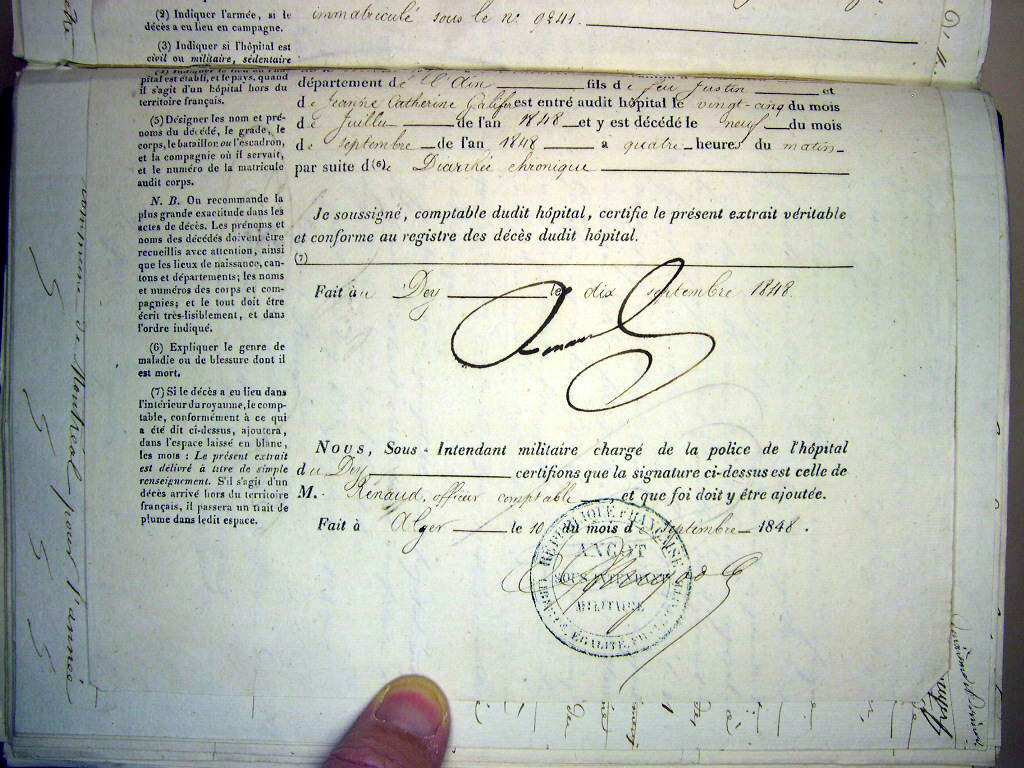 (2) Indiquer l'armée, si le
décès a eu lieu en campagne.
(3) Indiquer si l'hôpital est
civil ou militaire, sédentaire
pital est établi, et le pays, quand
il s'agit d'un hôpital hors du
territoire français.
(5) Désigner les nom et pré-
noms du décédé, le grade, le
corps, le bataillon ou l'escadron,
et la compagnie où il servait,
et le numéro de la matricule
audit corps.
N. B. On recommande la
plus grande exactitude dans les
actes de décès. Les prénoms et
noms des décédés doivent être
recueillis avec attention, ainsi
que les lieux de naissance, can-
tons et départements; les noms
et numéros des corps et com-
pagnies; et le tout doit être
écrit très-lisiblement, et dans
l'ordre indiqué.
(6) Expliquer le genre de
maladie ou de blessure dont il
est mort.
(7) Si le décès a eu lieu dans
l'intérieur du royaume, le comp-
table, conformément à ce qui
a été dit ci-dessus, ajoutera,
dans l'espace laissé en blanc,
les mots : Le présent extrait
est délivré à titre de simple
renseignement. S'il s'agit d'un
décès arrivé hors du territoire
français, il passera un trait de
plume dans ledit espace.
immatriculé sous le n° 9241.
département de l'Ain fils de feu Justin et
de Jeanne Catherine est entré audit hôpital le vingt-cinq du mois
de Juillet de l'an 1848 et y est décédé le neuf du mois
de septembre de l'an 1848 a quatre heures du matin
par suite d (6) e Diarrhée chronique
Je soussigné, comptable dudit hôpital, certifie le présent extrait véritable
et conforme au registre des décès dudit hôpital.
(7)
Fait à u Dey le dix septembre 1848.
Renaud
NOUS, Sous-Intendant militaire chargé de la police de l'hôpital
du Dey certifions que la signature ci-dessus est celle de
M. Renaud, officier comptable et que foi doit y être ajoutée.
Fait à Alger le 10 du mois de septembre 1848.
RÉPUBLIQUE FRANÇAISE
ANGOT
SOUS INTENDANT
MILITAIRE
LIBERTÉ, ÉGALITÉ, FRATERNITÉ
commune de Montréal pour l'année